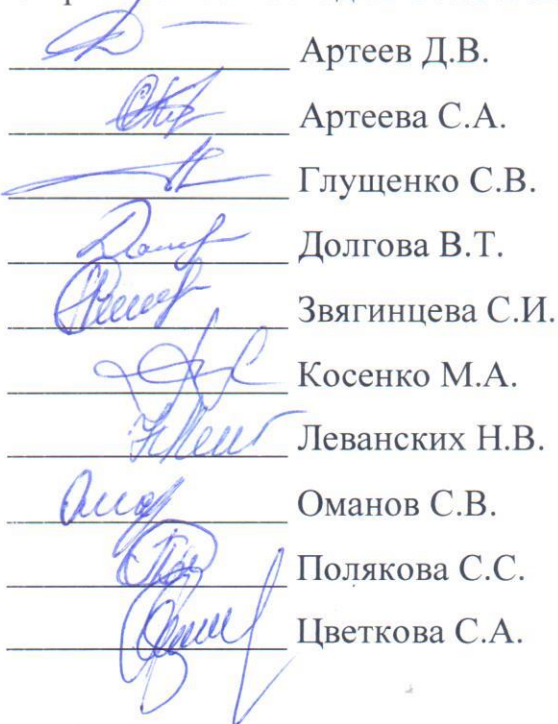 Артеев Д.В.
Артеева С.А.
Глущенко С.В.
Долгова В.Т.
Звягинцева С.И.
Косенко М.А.
Леванских Н.В.
Оманов С.В.
Полякова С.С.
Цветкова С.А.